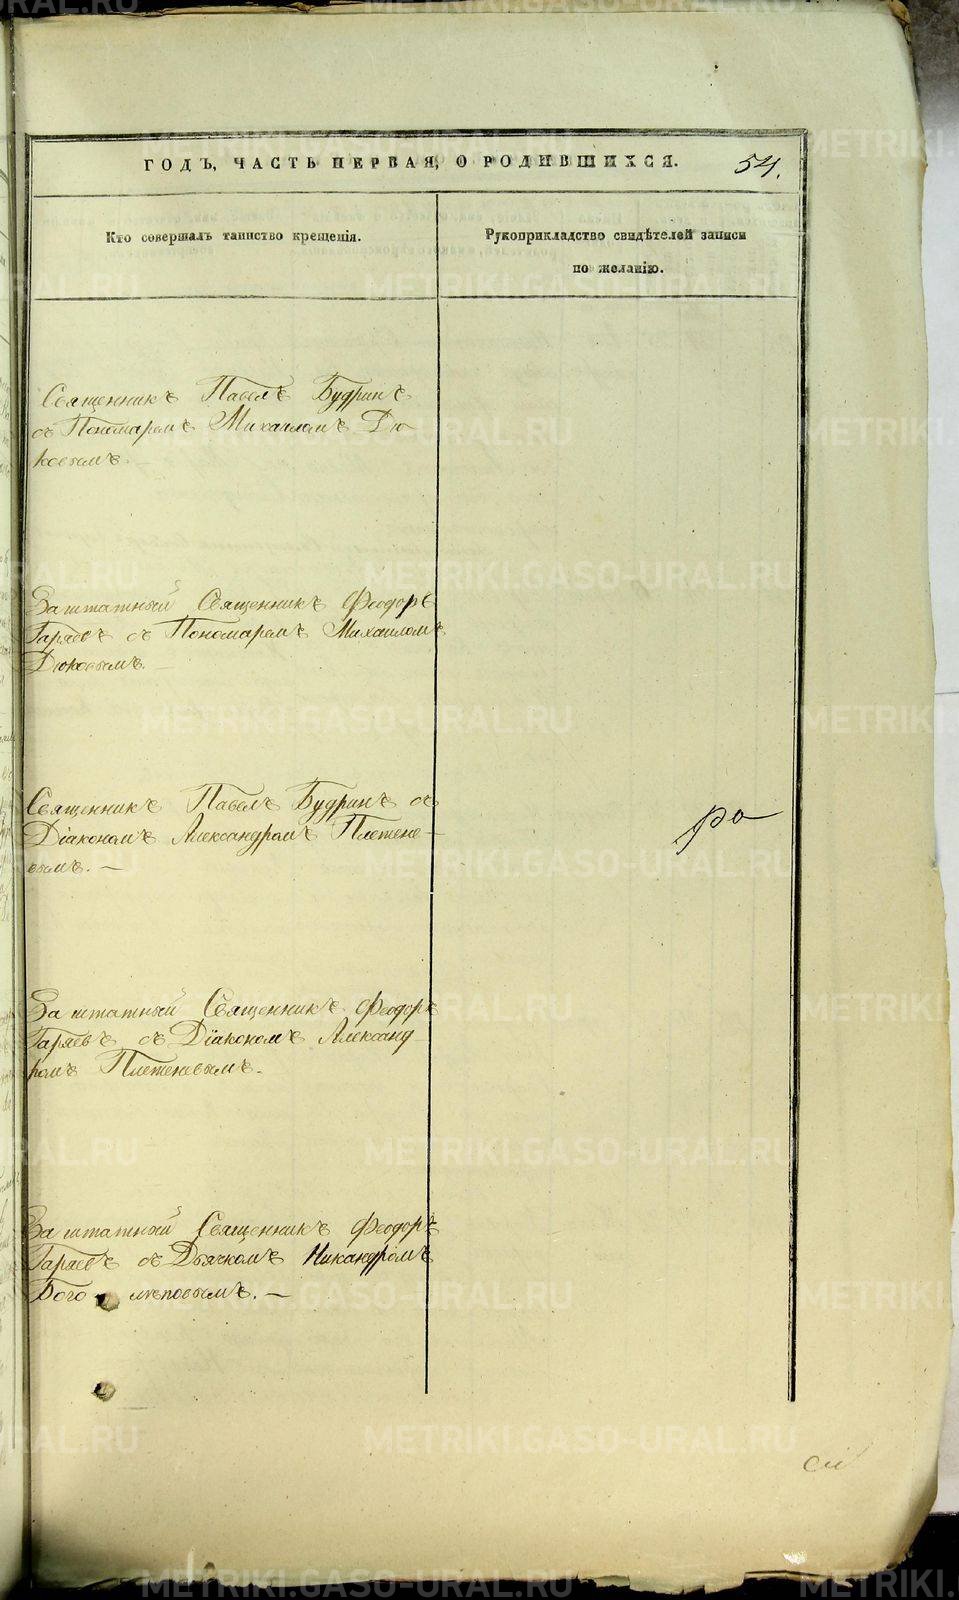 ГОДЪ, ЧАСТЬ ПЕРВАЯ, О РОДИВШИХСЯ. 54.
Кто совершалъ таинство крещенія.
Рукоприкладство свидѣтелей записи
по желанію.
Священникъ Павелъ Будринъ
съ Пономаремъ Михаиломъ Дю
ковымъ.
Заштатный Священникъ Феодоръ
Гаряевъ съ Пономаремъ Михаиломъ
Дюковымъ. —
Священникъ Павелъ Будринъ съ
Діакономъ Александромъ Плетене-
вымъ. —
ро
Заштатный Священникъ Феодоръ
Гаряевъ съ Діакономъ Александ
ромъ Плетеневымъ.
Заштатный Священникъ Феодоръ
Гаряевъ съ Дьячкомъ Никандромъ
Боголѣповымъ. —
METRIKI.GASO-URAL.RU